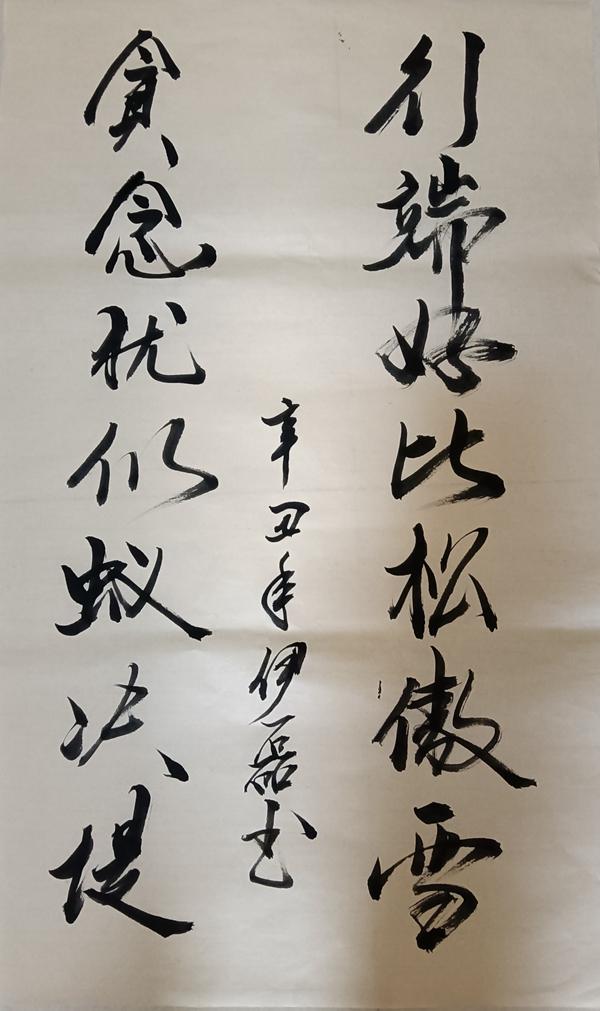 行端好比松傲雪
贪念犹似蚁决堤
辛丑年伊磊书